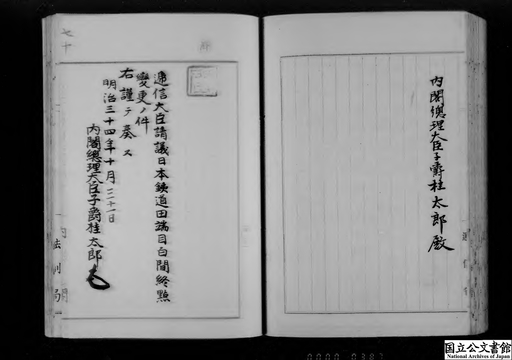 内閣總理大臣子爵桂太郎殿
逓信大臣請議日本鉄道田端目白間終點
變更ノ件
右謹テ奏ス
明治三十四年十月二十一日
内閣總理大臣子爵桂太郎
七十
法制局
0000 0383
国立公文書館
National Archives of Japan